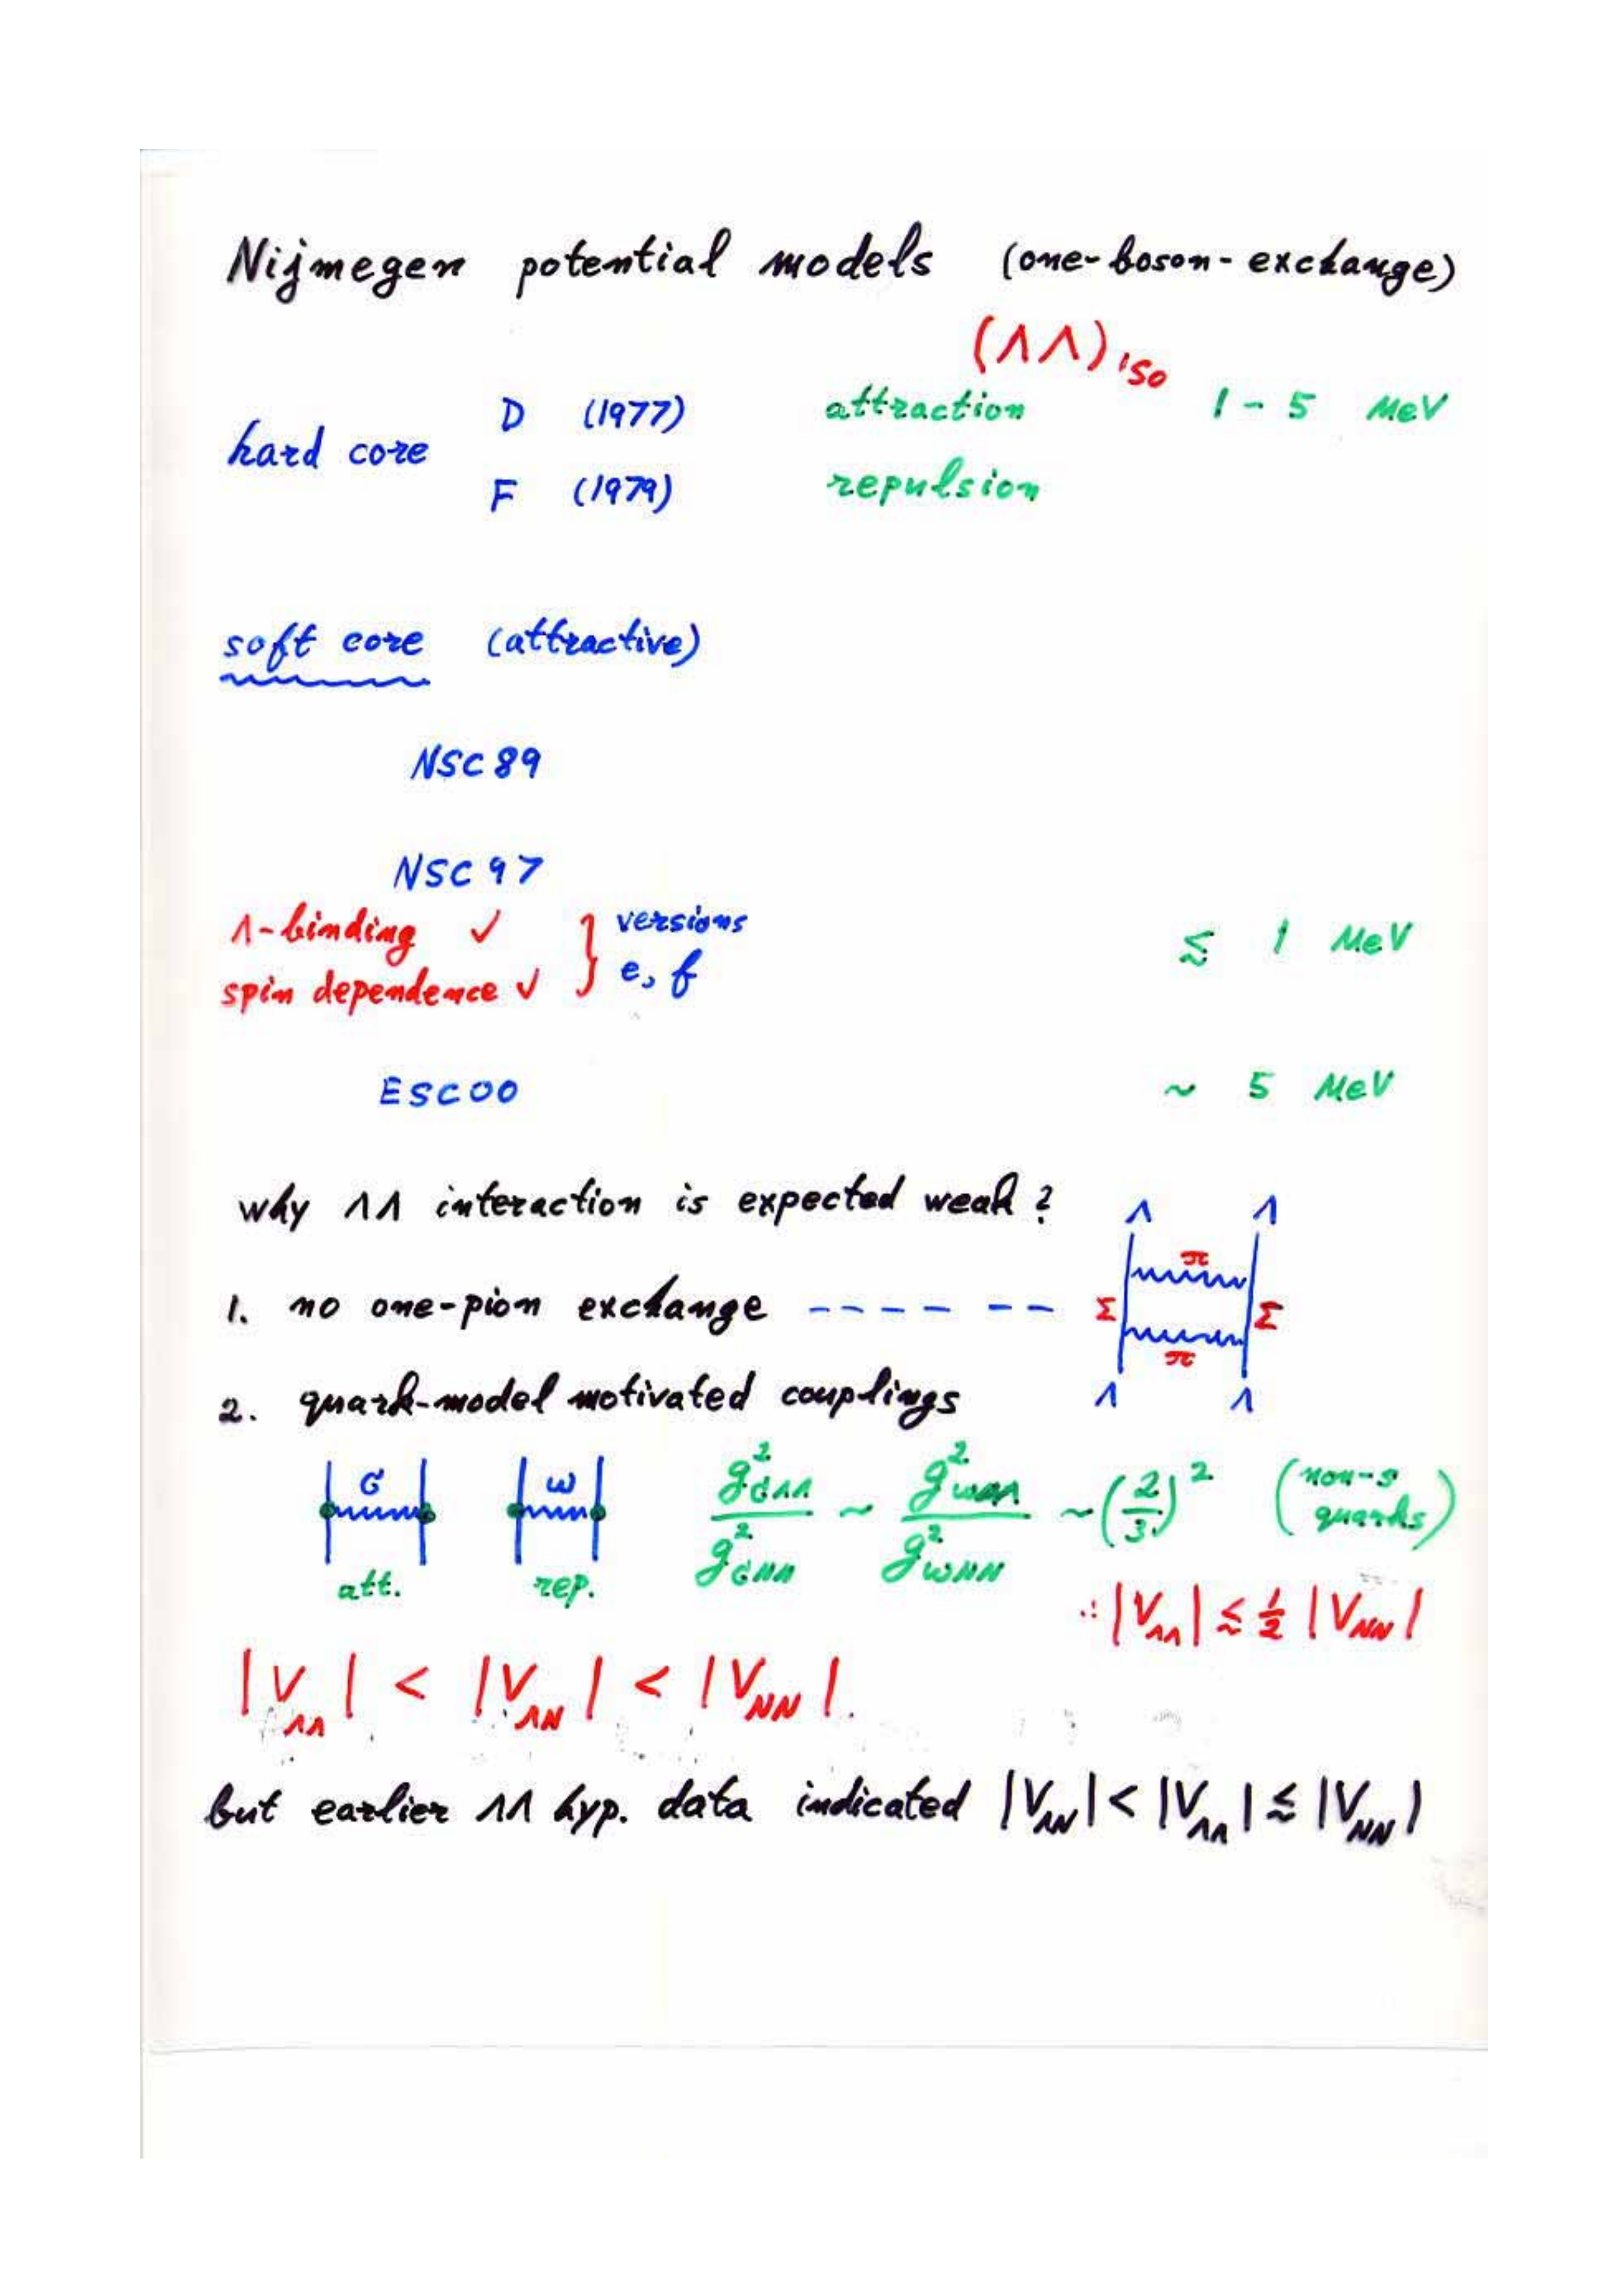 Nijmegen potential models (one-boson-exchange)
(ΛΛ)¹S₀
hard core D (1977) attraction 1 - 5 MeV
F (1979) repulsion
soft core (attractive)
NSC 89
NSC 97
Λ-binding ✓ } versions
spin dependence ✓ e, f
≲ 1 MeV
ESC00 ~ 5 MeV
why ΛΛ interaction is expected weak?
Λ Λ
π
1. no one-pion exchange ---- -- Σ Σ
π
Λ Λ
2. quark-model motivated couplings
σ ω g²σΛΛ / g²σNN ~ g²ωΛΛ / g²ωNN ~ (2/3)² (non-s quarks)
att. rep.
∴ |VΛΛ| ≲ 1/2 |VNN|
|VΛΛ| < |VΛN| < |VNN|.
but earlier ΛΛ hyp. data indicated |VΛN| < |VΛΛ| ≲ |VNN|